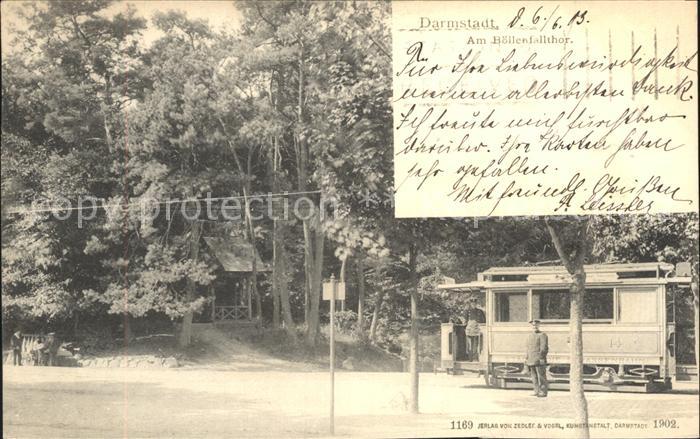 Darmstadt, d. 6/6.03.
Am Böllenfallthor.
Für Ihre Liebenswürdigkeit
meinen allerbesten Dank.
Ich freute mich furchtbar
darüber. Ihre Karten haben
sehr gefallen.
Mit freundl. Grüßen
copyright delcampe.net
14
STRASSENBAHN
1169 VERLAG VON ZEDLER & VOGEL, KUNSTANSTALT, DARMSTADT. 1902.